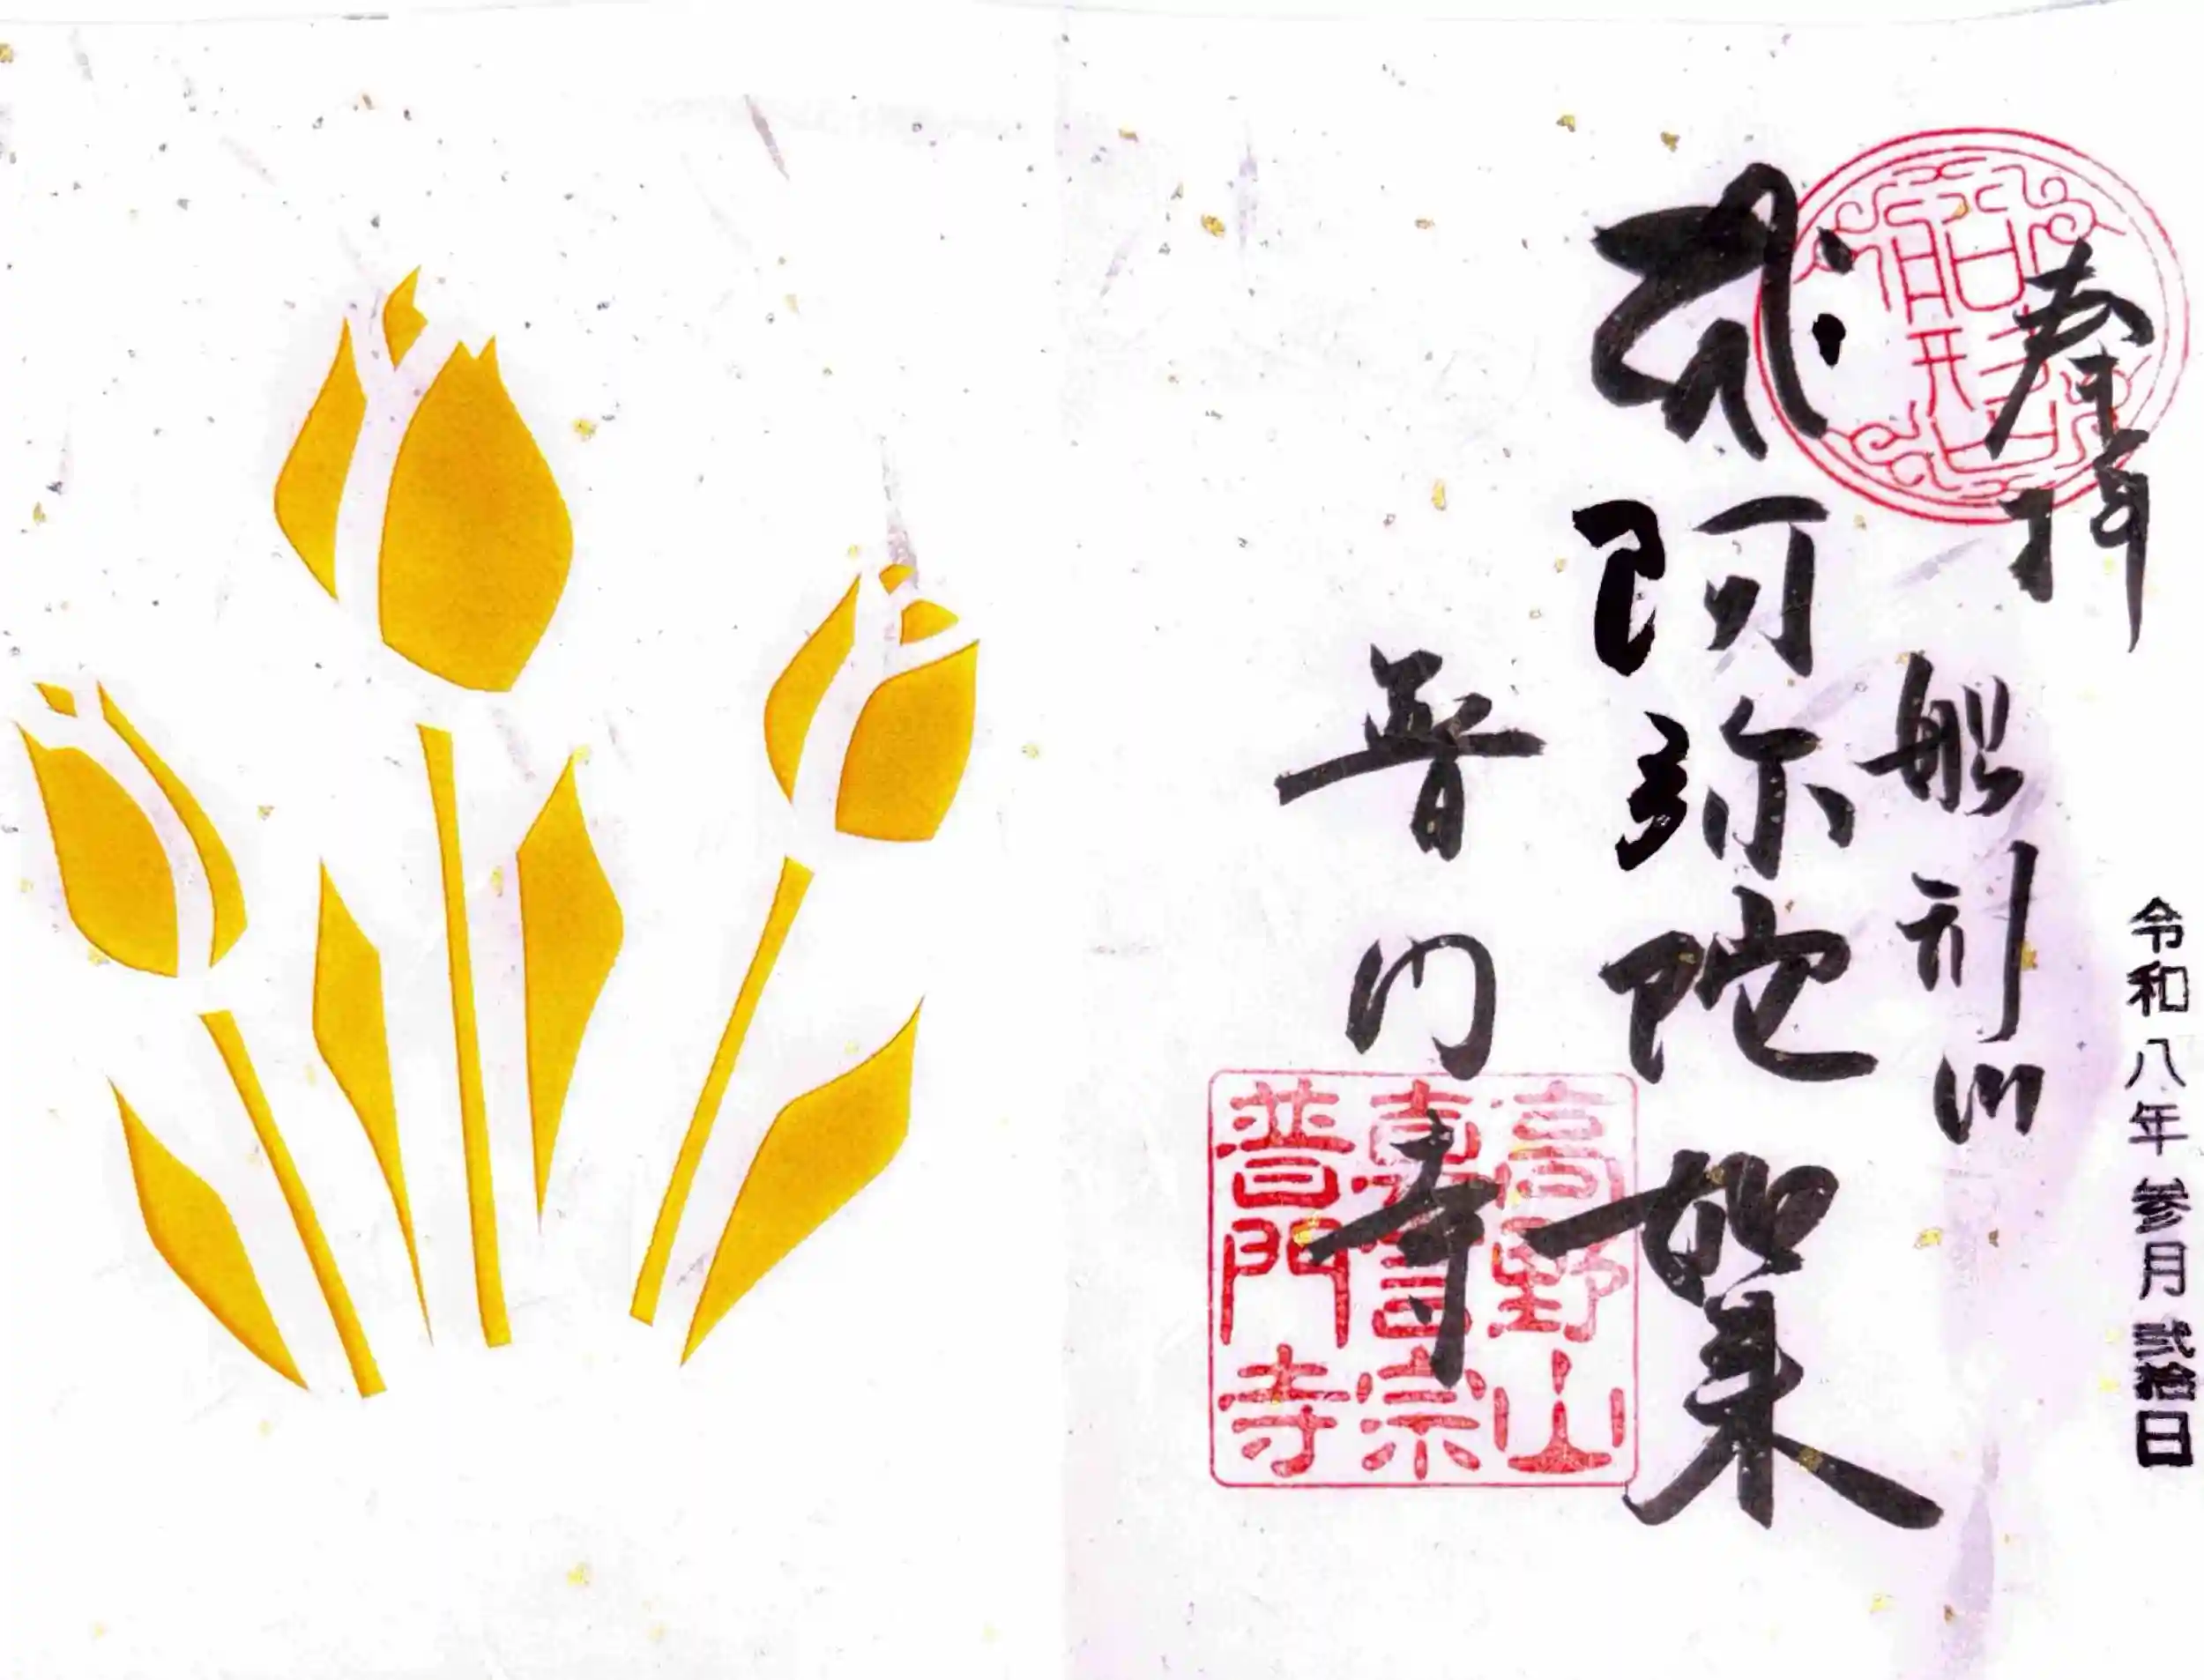 奉拝
令和八年参月弐拾日
船形山
阿弥陀如来
普門寺
高野山
真言宗
普門寺